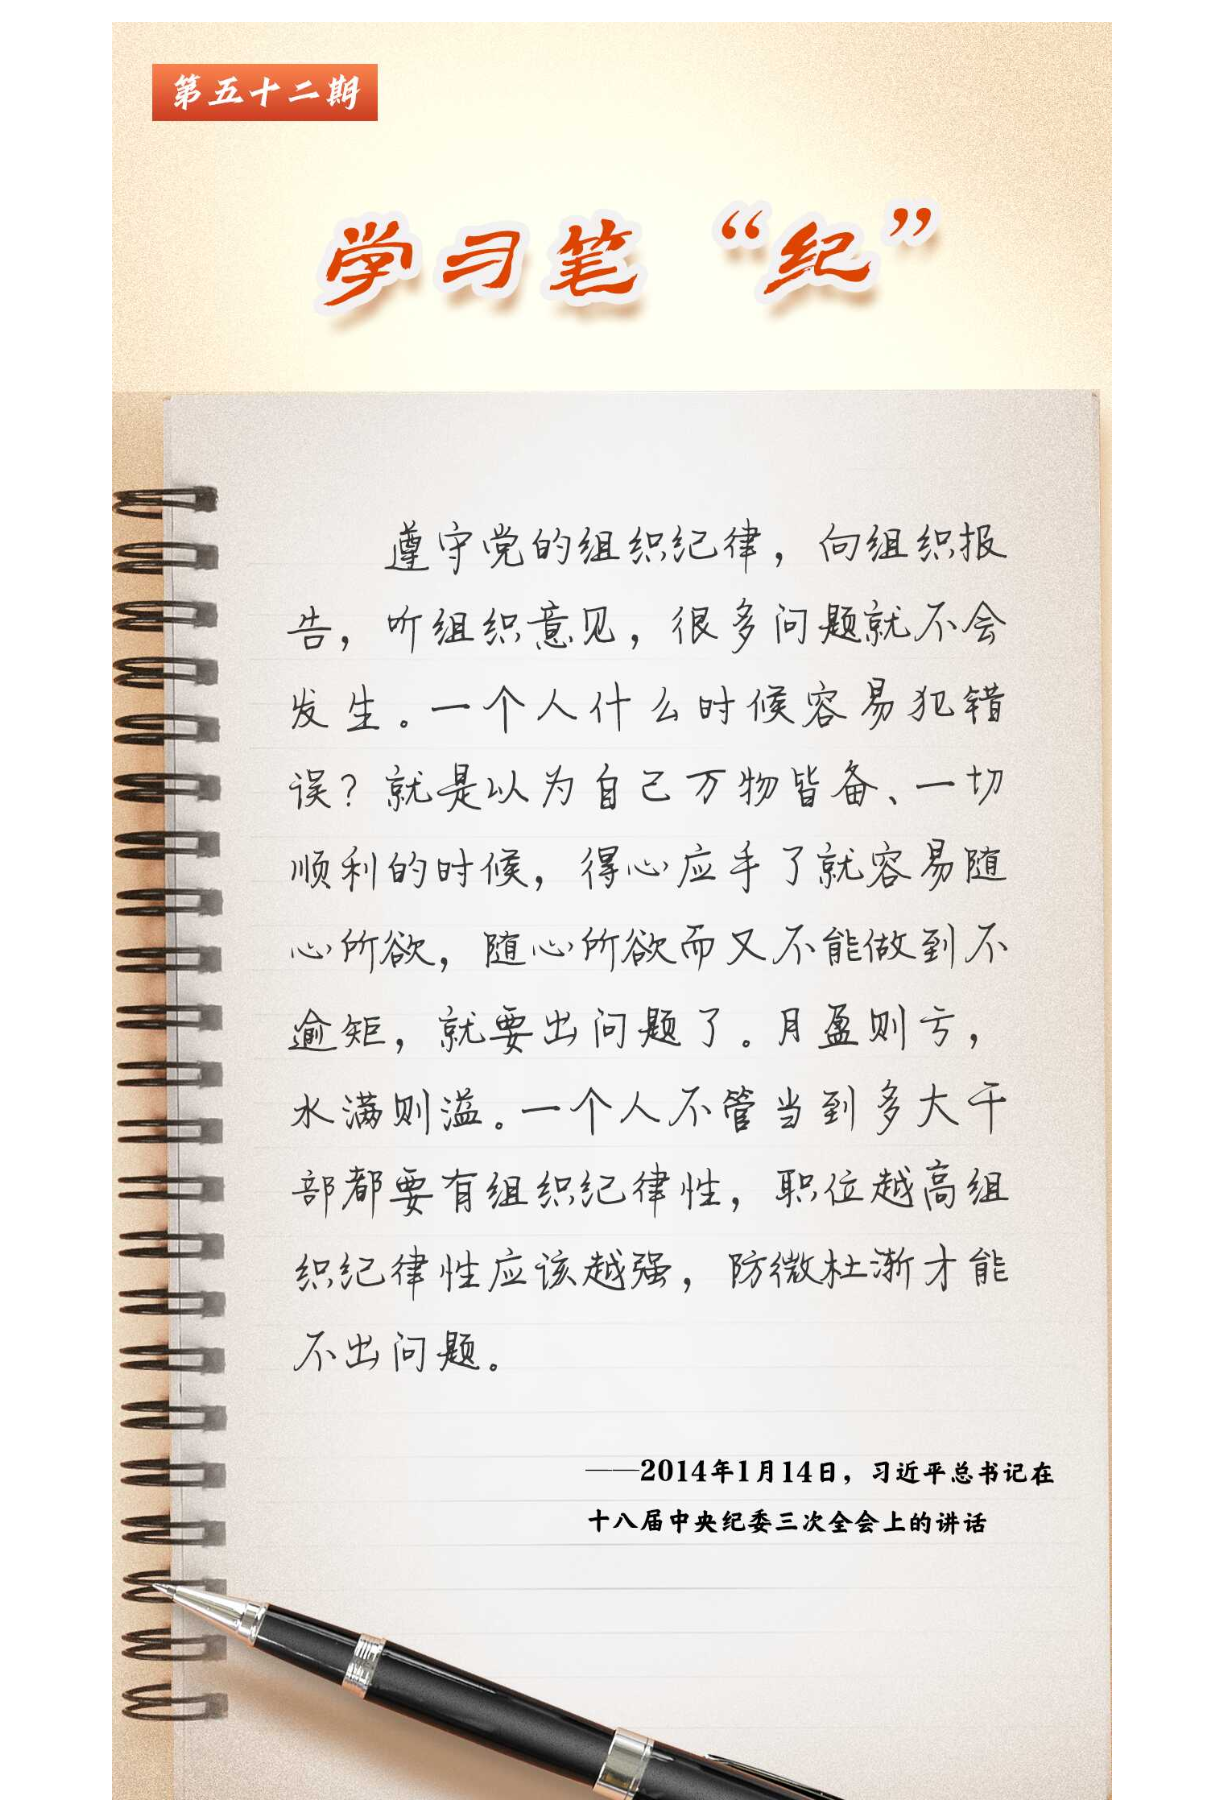 第五十二期
学习笔“纪”
遵守党的组织纪律，向组织报
告，听组织意见，很多问题就不会
发生。一个人什么时候容易犯错
误？就是以为自己万物皆备、一切
顺利的时候，得心应手了就容易随
心所欲，随心所欲而又不能做到不
逾矩，就要出问题了。月盈则亏，
水满则溢。一个人不管当到多大干
部都要有组织纪律性，职位越高组
织纪律性应该越强，防微杜渐才能
不出问题。
——2014年1月14日，习近平总书记在
十八届中央纪委三次全会上的讲话